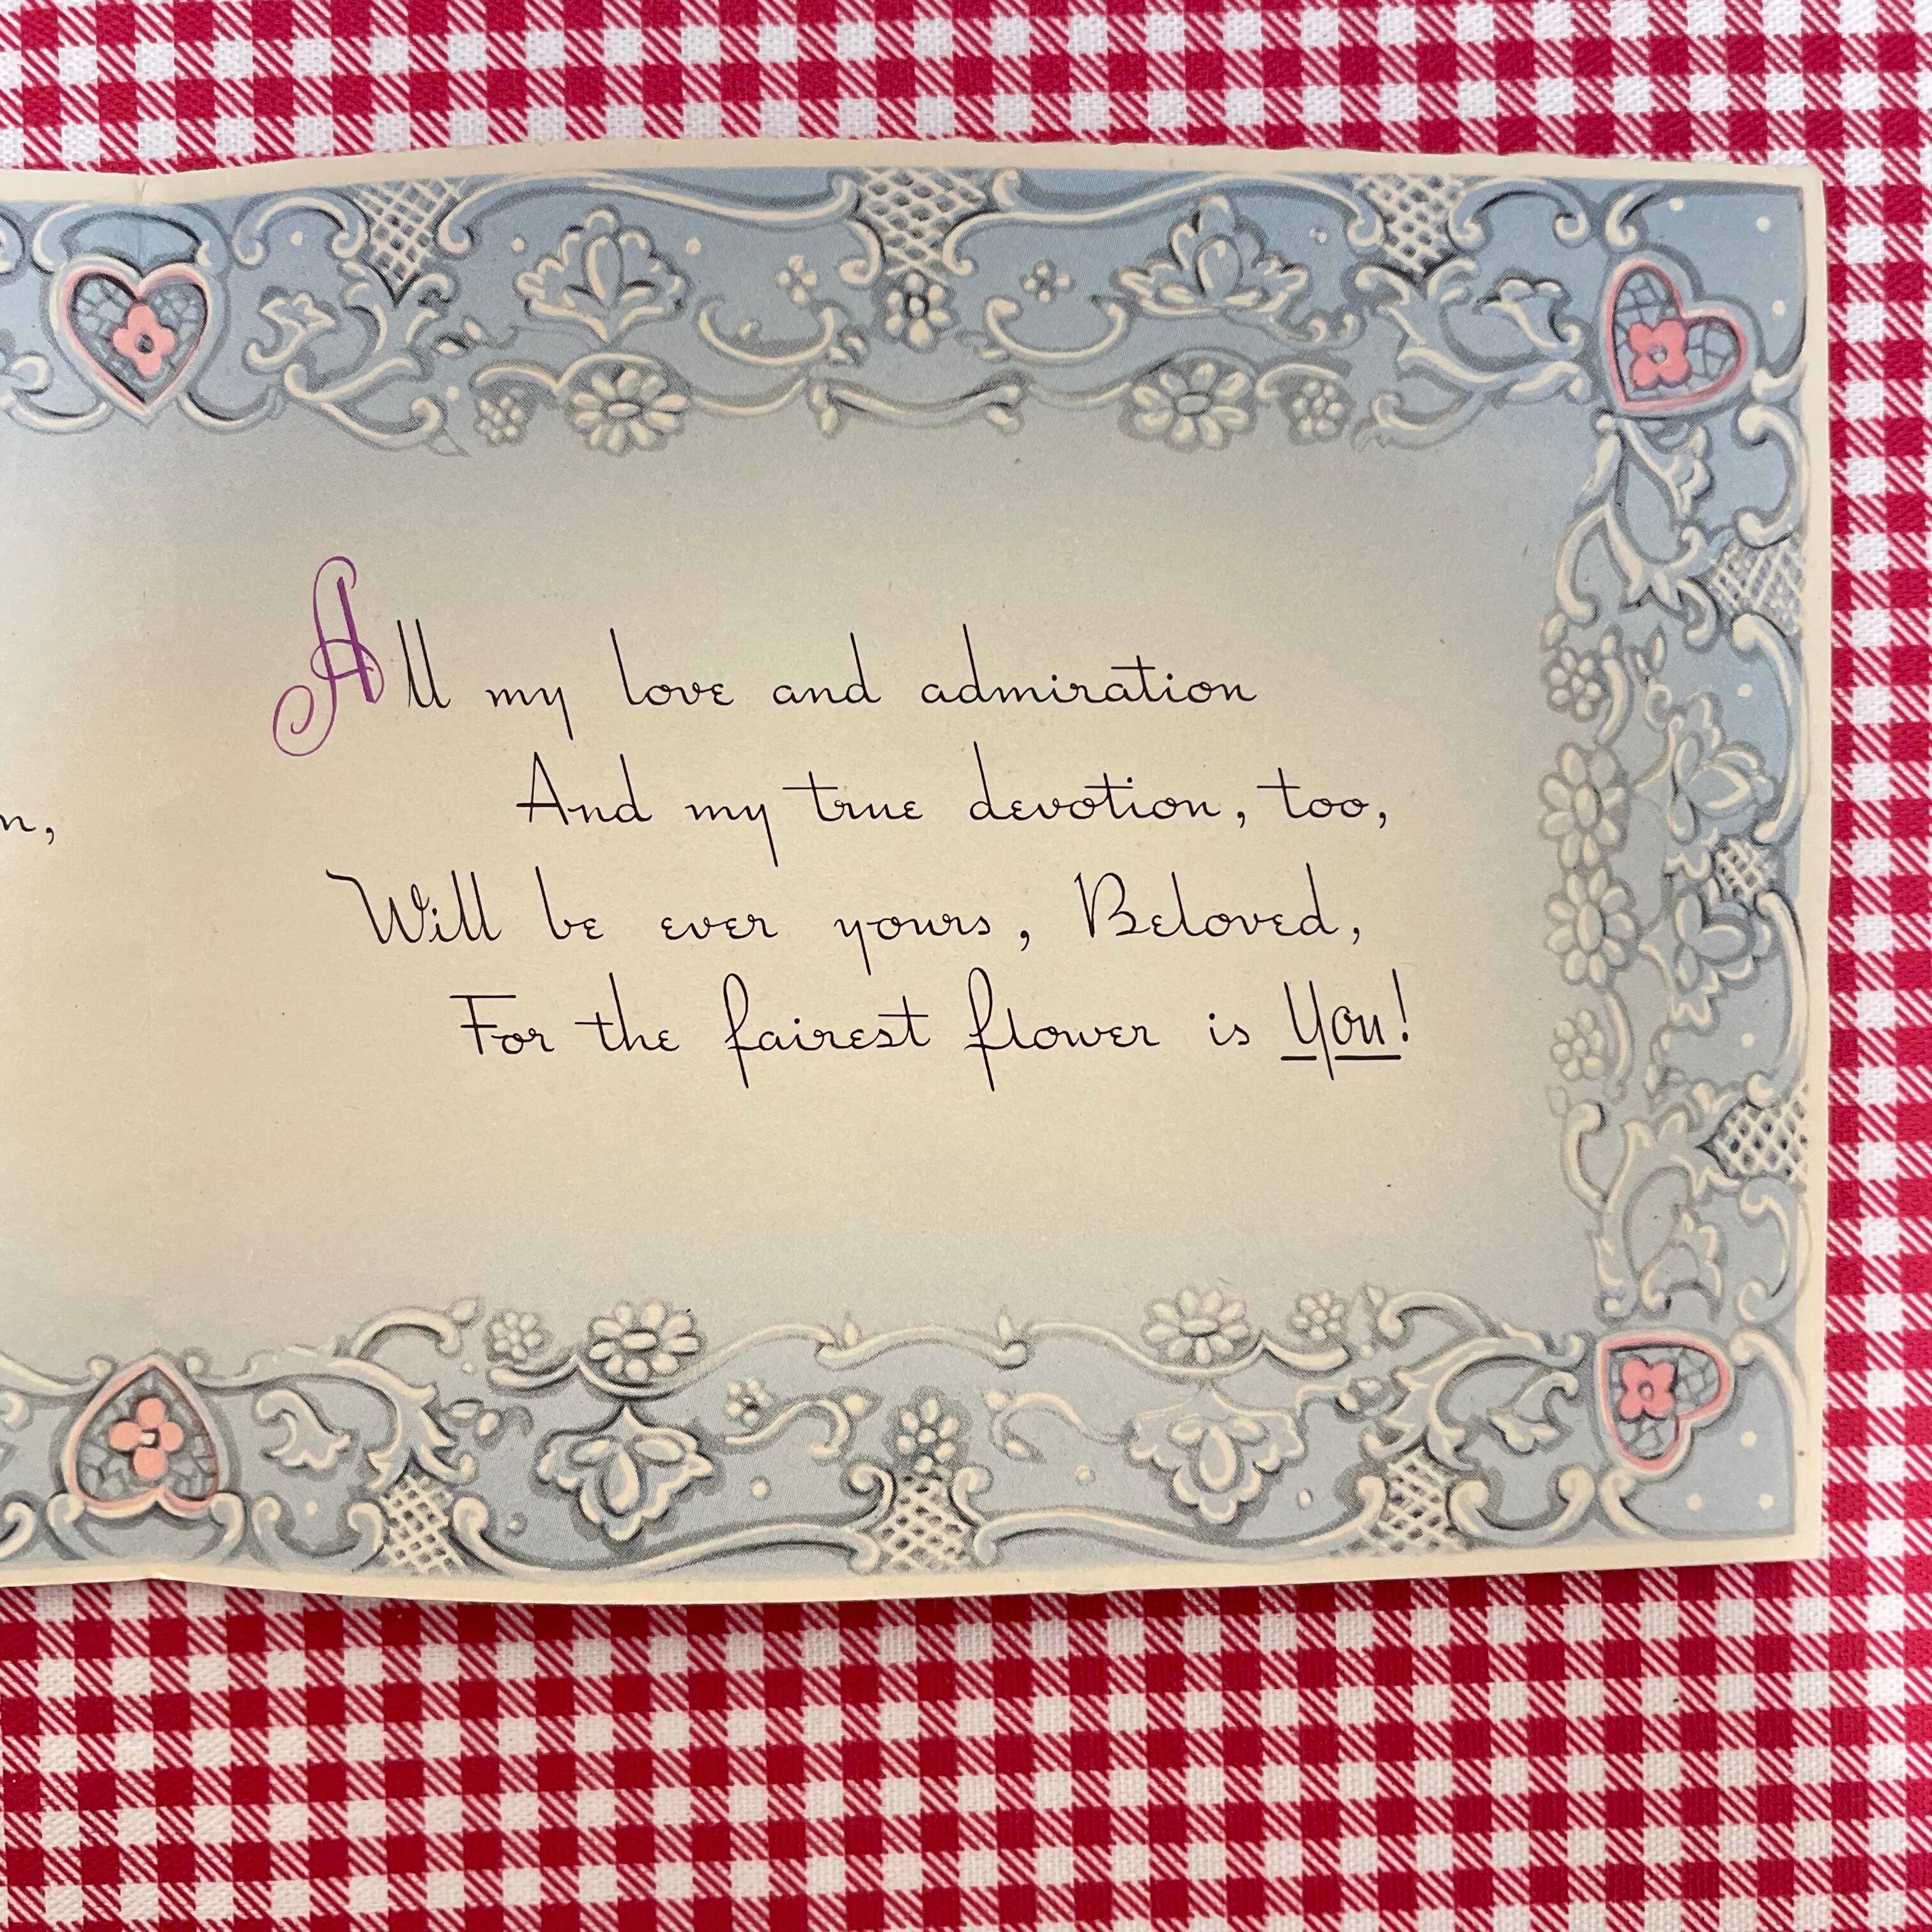 All my love and admiration
And my true devotion, too,
Will be ever yours, Beloved,
For the fairest flower is You!